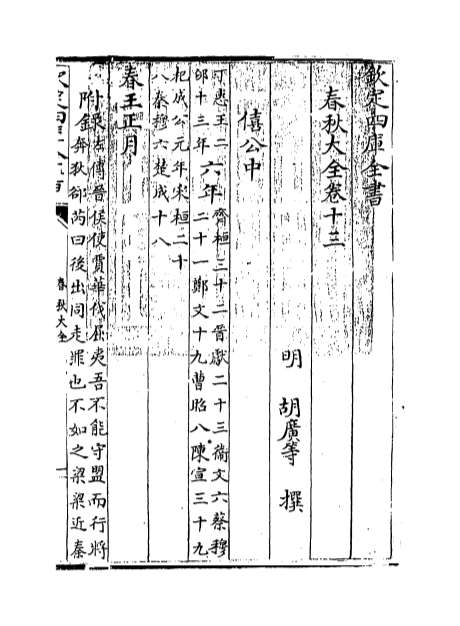 欽定四庫全書
春秋大全卷十三
明 胡廣等 撰
僖公中
丁惠王二
卯十三年
六年
齊桓三十二晉獻二十三衛文六蔡穆
二十一鄭文十九曹昭八陳宣三十九
杞成公元年宋桓二十
八秦穆六楚成十八
春王正月
附錄左傳晉侯使賈華伐屈夷吾不能守盟而行將
奔狄郤芮曰後出同走罪也不如之梁梁近秦
春秋大全